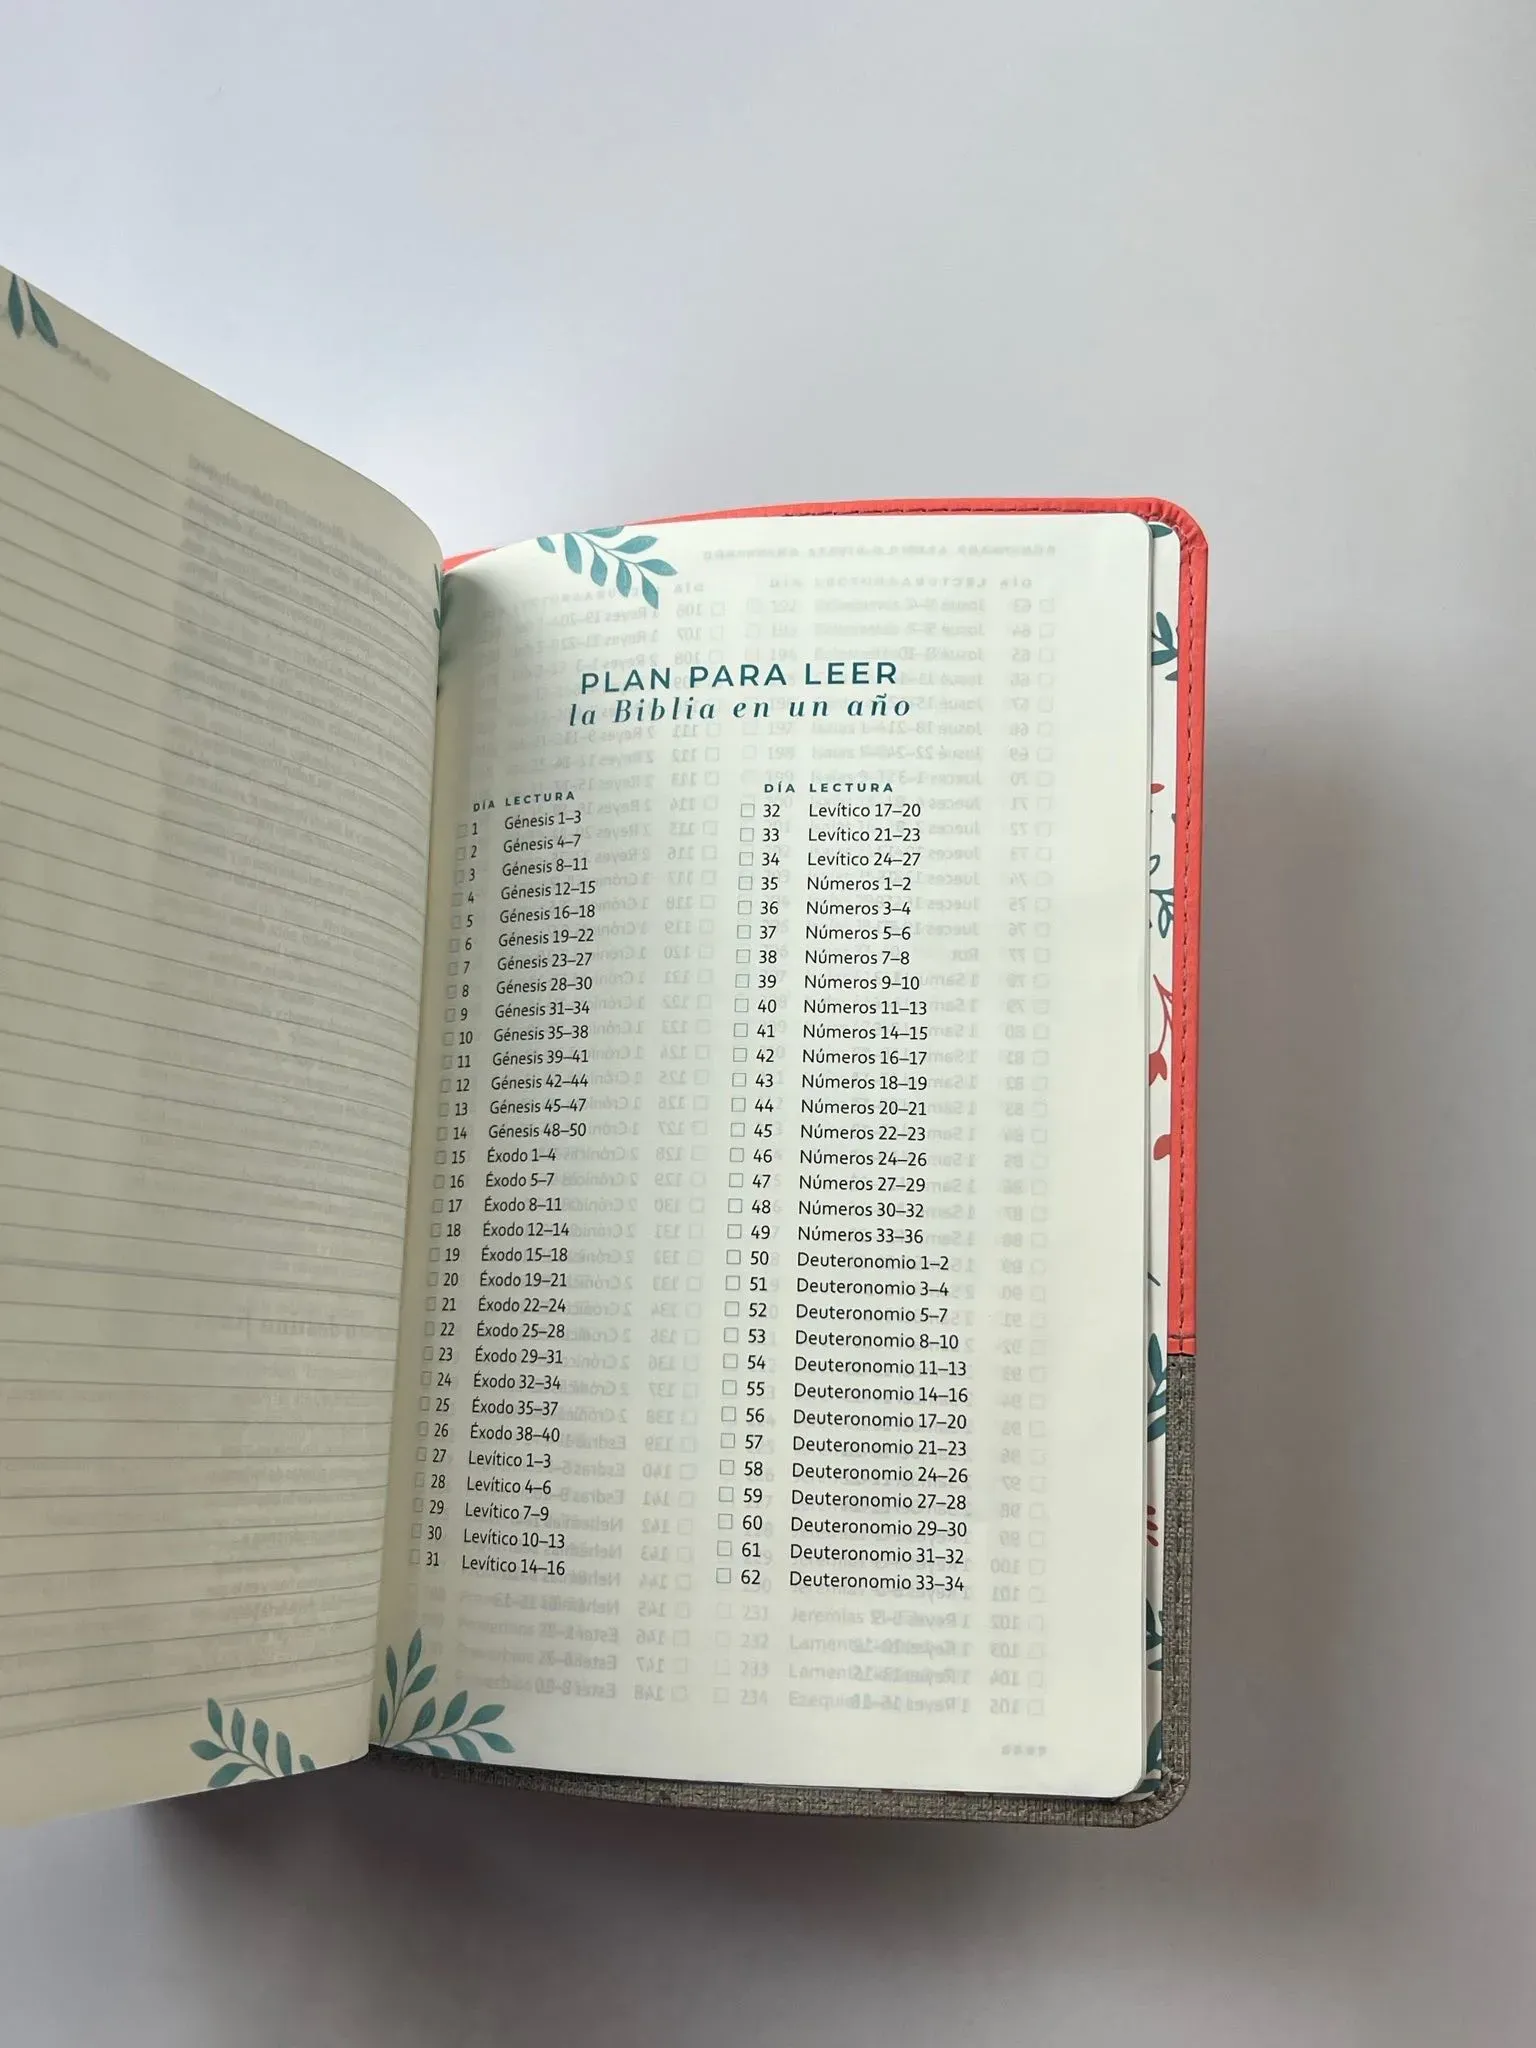 PLAN PARA LEER
la Biblia en un año
DÍA LECTURA
1 Génesis 1–3
2 Génesis 4–7
3 Génesis 8–11
4 Génesis 12–15
5 Génesis 16–18
6 Génesis 19–22
7 Génesis 23–27
8 Génesis 28–30
9 Génesis 31–34
10 Génesis 35–38
11 Génesis 39–41
12 Génesis 42–44
13 Génesis 45–47
14 Génesis 48–50
15 Éxodo 1–4
16 Éxodo 5–7
17 Éxodo 8–11
18 Éxodo 12–14
19 Éxodo 15–18
20 Éxodo 19–21
21 Éxodo 22–24
22 Éxodo 25–28
23 Éxodo 29–31
24 Éxodo 32–34
25 Éxodo 35–37
26 Éxodo 38–40
27 Levítico 1–3
28 Levítico 4–6
29 Levítico 7–9
30 Levítico 10–13
31 Levítico 14–16
DÍA LECTURA
32 Levítico 17–20
33 Levítico 21–23
34 Levítico 24–27
35 Números 1–2
36 Números 3–4
37 Números 5–6
38 Números 7–8
39 Números 9–10
40 Números 11–13
41 Números 14–15
42 Números 16–17
43 Números 18–19
44 Números 20–21
45 Números 22–23
46 Números 24–26
47 Números 27–29
48 Números 30–32
49 Números 33–36
50 Deuteronomio 1–2
51 Deuteronomio 3–4
52 Deuteronomio 5–7
53 Deuteronomio 8–10
54 Deuteronomio 11–13
55 Deuteronomio 14–16
56 Deuteronomio 17–20
57 Deuteronomio 21–23
58 Deuteronomio 24–26
59 Deuteronomio 27–28
60 Deuteronomio 29–30
61 Deuteronomio 31–32
62 Deuteronomio 33–34